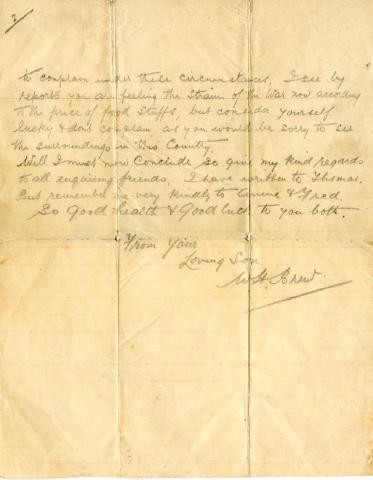 2
to complain under these circumstances, I see by
reports you are feeling the strain of the War now according
to the price of food stuffs, but consider yourself
lucky & dont complain, as you would be sorry to see
the surroundings in this Country.
Well I must now Conclude So give my kind regards
to all enquiring friends, I have written to Thomas.
But remember me very kindly to Annie & Fred.
So Good health & Good luck to you both.
From Your
Loving Son
W.H. Brew.